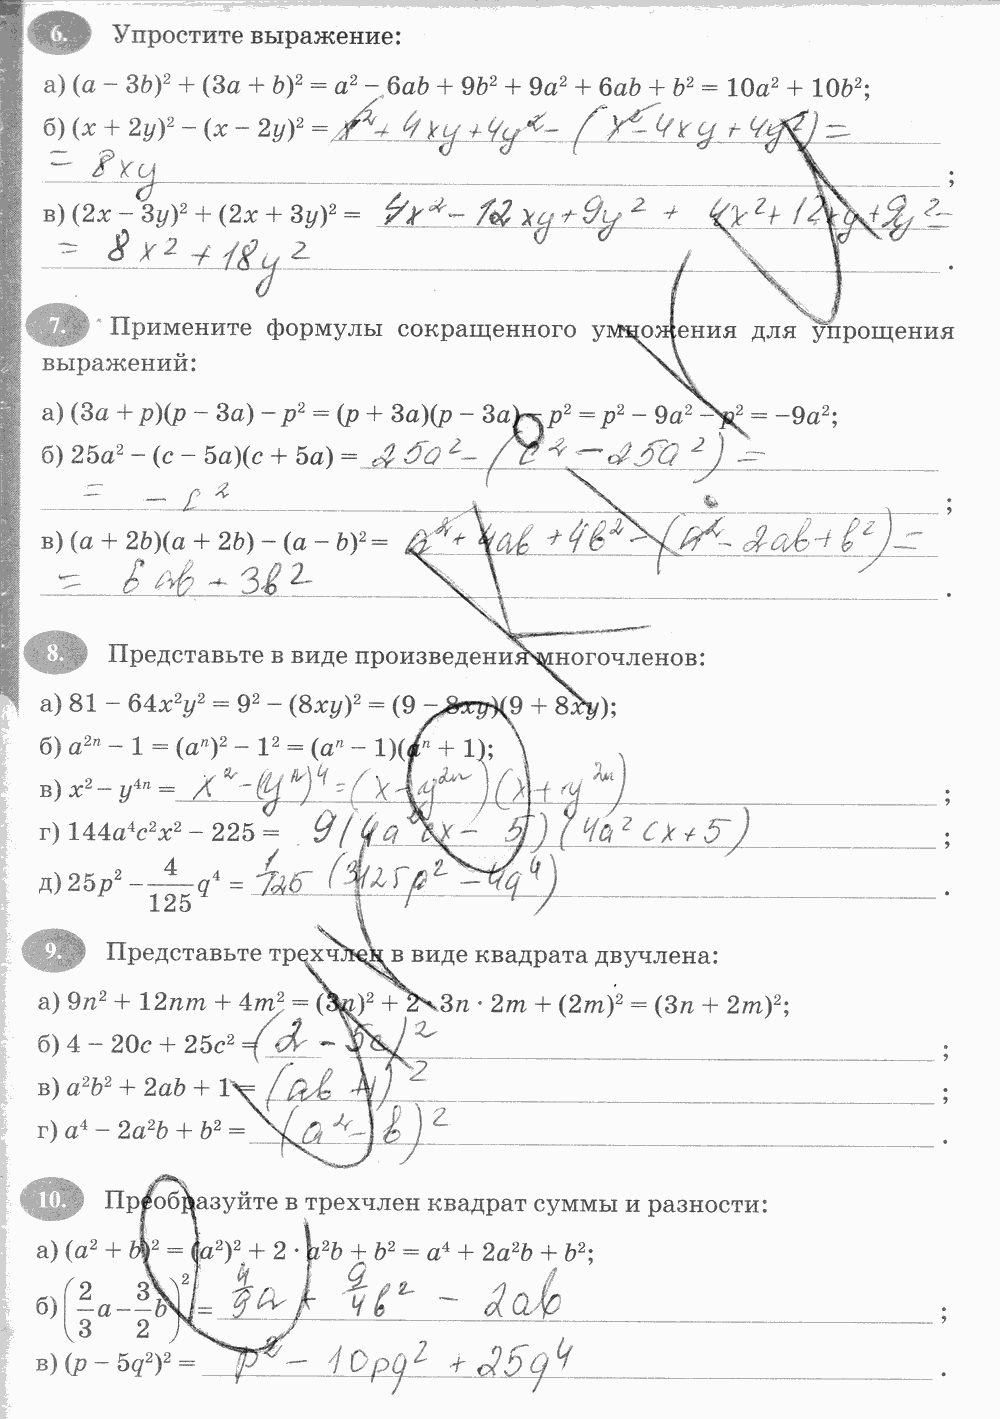 6. Упростите выражение:
а) (a − 3b)² + (3a + b)² = a² − 6ab + 9b² + 9a² + 6ab + b² = 10a² + 10b²;
б) (x + 2y)² − (x − 2y)² = x² + 4xy + 4y² − (x² − 4xy + 4y²) =
= 8xy ;
в) (2x − 3y)² + (2x + 3y)² = 4x² − 12xy + 9y² + 4x² + 12xy + 9y² =
= 8x² + 18y² .
7. Примените формулы сокращенного умножения для упрощения
выражений:
а) (3a + p)(p − 3a) − p² = (p + 3a)(p − 3a) − p² = p² − 9a² − p² = −9a²;
б) 25a² − (c − 5a)(c + 5a) = 25a² − (c² − 25a²) =
= − c² ;
в) (a + 2b)(a + 2b) − (a − b)² = a² + 4ab + 4b² − (a² − 2ab + b²) =
= 6ab + 3b² .
8. Представьте в виде произведения многочленов:
а) 81 − 64x²y² = 9² − (8xy)² = (9 − 8xy)(9 + 8xy);
б) a²ⁿ − 1 = (aⁿ)² − 1² = (aⁿ − 1)(aⁿ + 1);
в) x² − y⁴ⁿ = x² − (yⁿ)⁴ = (x − y²ⁿ)(x + y²ⁿ) ;
г) 144a⁴c²x² − 225 = 9(4a²cx − 5)(4a²cx + 5) ;
д) 25p² − 4/125 q⁴ = 1/125 (3125p² − 4q⁴) .
9. Представьте трехчлен в виде квадрата двучлена:
а) 9n² + 12nm + 4m² = (3n)² + 2 · 3n · 2m + (2m)² = (3n + 2m)²;
б) 4 − 20c + 25c² = (2 − 5c)² ;
в) a²b² + 2ab + 1 = (ab + 1)² ;
г) a⁴ − 2a²b + b² = (a² − b)² .
10. Преобразуйте в трехчлен квадрат суммы и разности:
а) (a² + b)² = (a²)² + 2 · a²b + b² = a⁴ + 2a²b + b²;
б) (2/3 a − 3/2 b)² = 4/9 a + 9/4 b² − 2ab ;
в) (p − 5q²)² = p² − 10pq² + 25q⁴ .